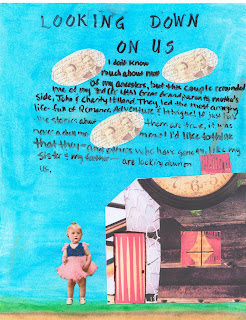 LOOKING DOWN
ON US
I don't know
much about most
of my ancestors, but this couple reminded
me of my 3rd Great Grandparents
side, John & Charity Hilland. They led the most amazing
life- full of Romance, Adventure & Intrigue!
the stories about them are true, it was
never a dull moment! I'd like to think
that they- and others who have gone on, like my
sister & my father- are looking down on
us,